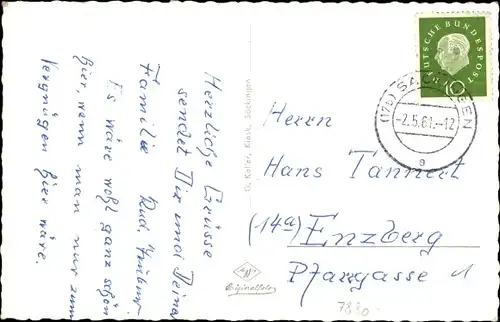 Herzliche Grüsse
sendet Dir und Deiner
Familie Rud.
Es wäre wohl ganz schön
hier, wenn man nur zum
Vergnügen hier wäre.
G. Koller, Kiosk, Säckingen
Originalfoto
DEUTSCHE BUNDESPOST
10
(17b) SÄCKINGEN
-2.5.61.-12
a
Herrn
Hans Tannert
(14a) Enzberg
Pfarrgasse 1
7880